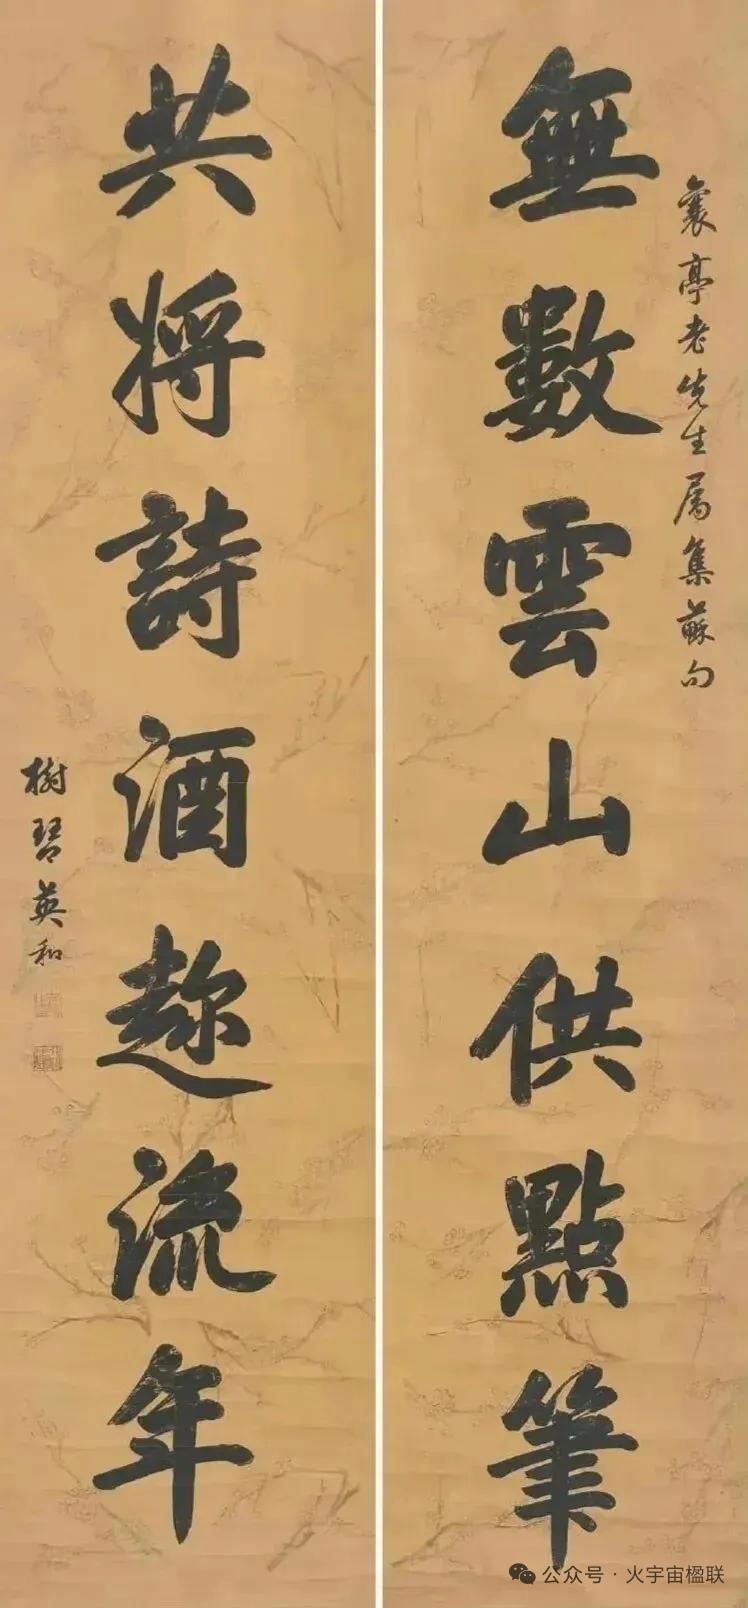 襄亭老先生属集蘇句
無數雲山供點筆
共將詩酒趂流年
樹琴英和
公众号 · 火宇宙楹联